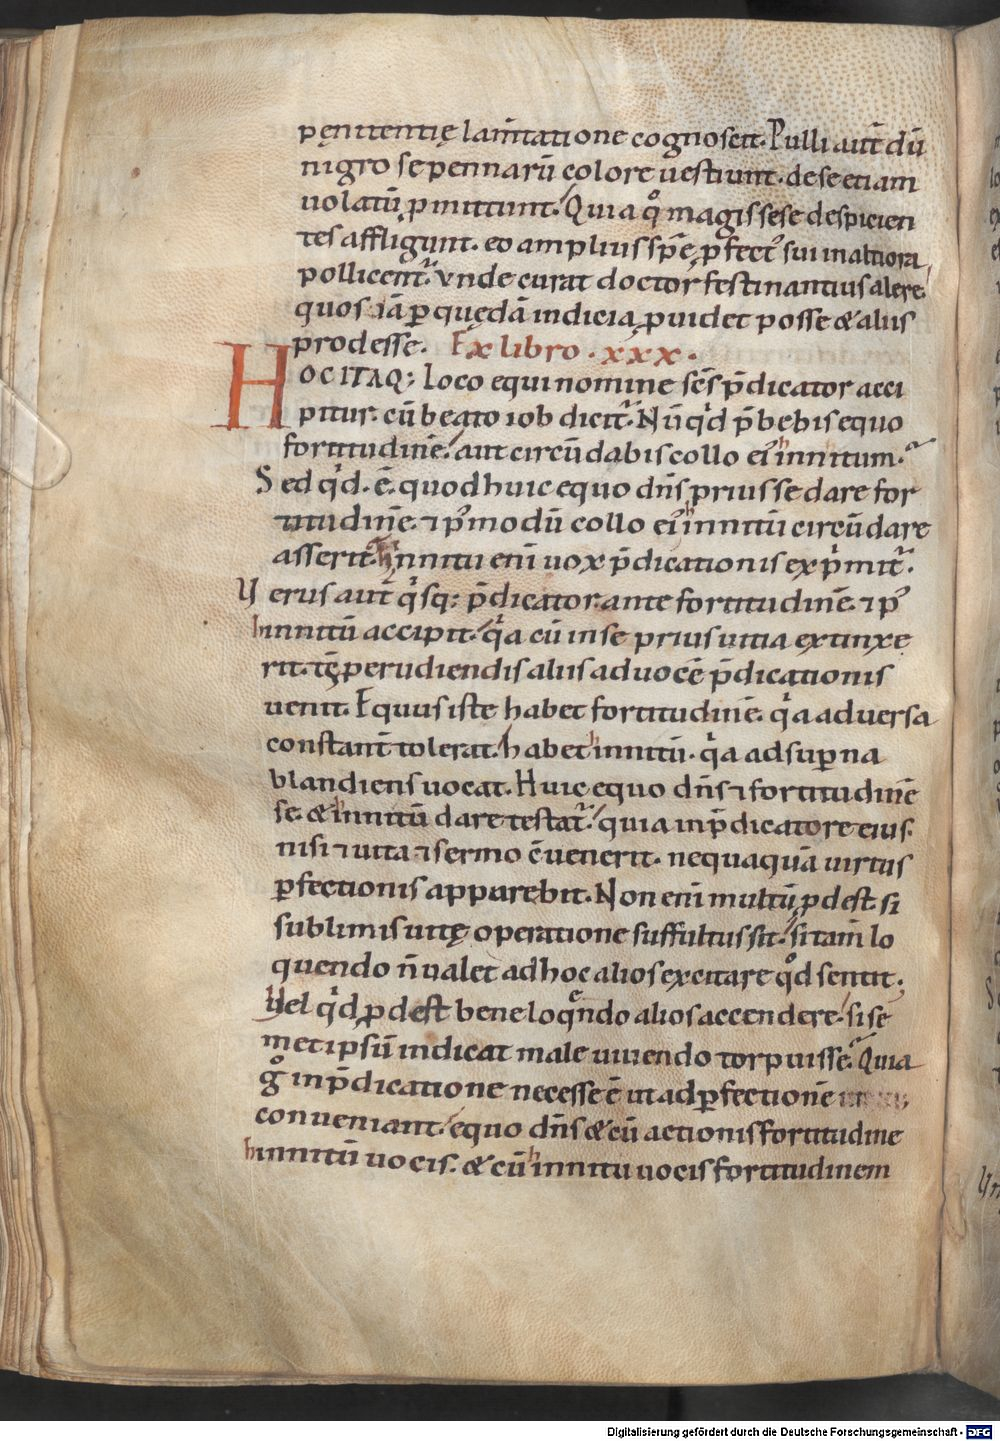 pęnitentię lam̄tatione cognoscit. Pulli aut̄ dū
nigro se pennarū colore uestiunt. de se etiam
uolatū ꝓmittunt. Quia qͦ magis sese despicien
tes affligunt. eo amplius sp̄ē ꝓfectꝰ sui in altiora
pollicent᷑. Vnde curat doctor festinantius alere.
quos iā ꝑ quędā indicia ꝓuidet posse & aliis
prodesse. Ex libro . xxx .
HOC ITAQ; loco equi nomine sc̄s p̄dicator acci
pitur. cū beato iob dicit᷑. Nūqͥd p̄bebis equo
fortitudinē. aut circūdabis collo eiꝰ hinnitum.
Sed qͥd .ē. quod huic equo dn̄s prius se dare for
titudinē. ⁊ pꝰmodū collo eiꝰ hinnitū circūdare
asserit. hinnitu eni uox p̄dicationis expͥmit᷑.
Verus aut̄ qͥsq; p̄dicator. ante fortitudinē. ⁊ pꝰ
hinnitū accipit. qͥa cū in se prius uitia extinxe
rit. tę̄ pro erudiendis aliis ad uocē p̄dicationis
uenit. Equus iste habet fortitudinē. qͥa aduersa
constant̄ tolerat. habet hinnitū. qͥa ad suꝑna
blandiens uocat. Huic equo dn̄s ⁊ fortitudinē
se. & hinnitū dare testat᷑. quia in p̄dicatore eius.
nisi ⁊ uita ⁊ sermo c̄uenerit. nequaquā uirtus
ꝑfectionis apparebit. Non eni multū ꝓdest. si
sublimis uitę operatione suffultus sit. si tam̄ lo
quendo n̄ ualet ad hoc alios excitare qͦd sentit.
Vel qͥd ꝓdest bene loquendo alios accendere. si se
met ipsū indicat male uiuendo torpuisse. Quia
gͦ in p̄dicatione necesse ē ut ad ꝑfectionē
conueniant. equo dn̄s & cū actionis fortitudine
hinnitū uocis. & cū hinnitu uocis fortitudinem
Digitalisierung gefördert durch die Deutsche Forschungsgemeinschaft - DFG